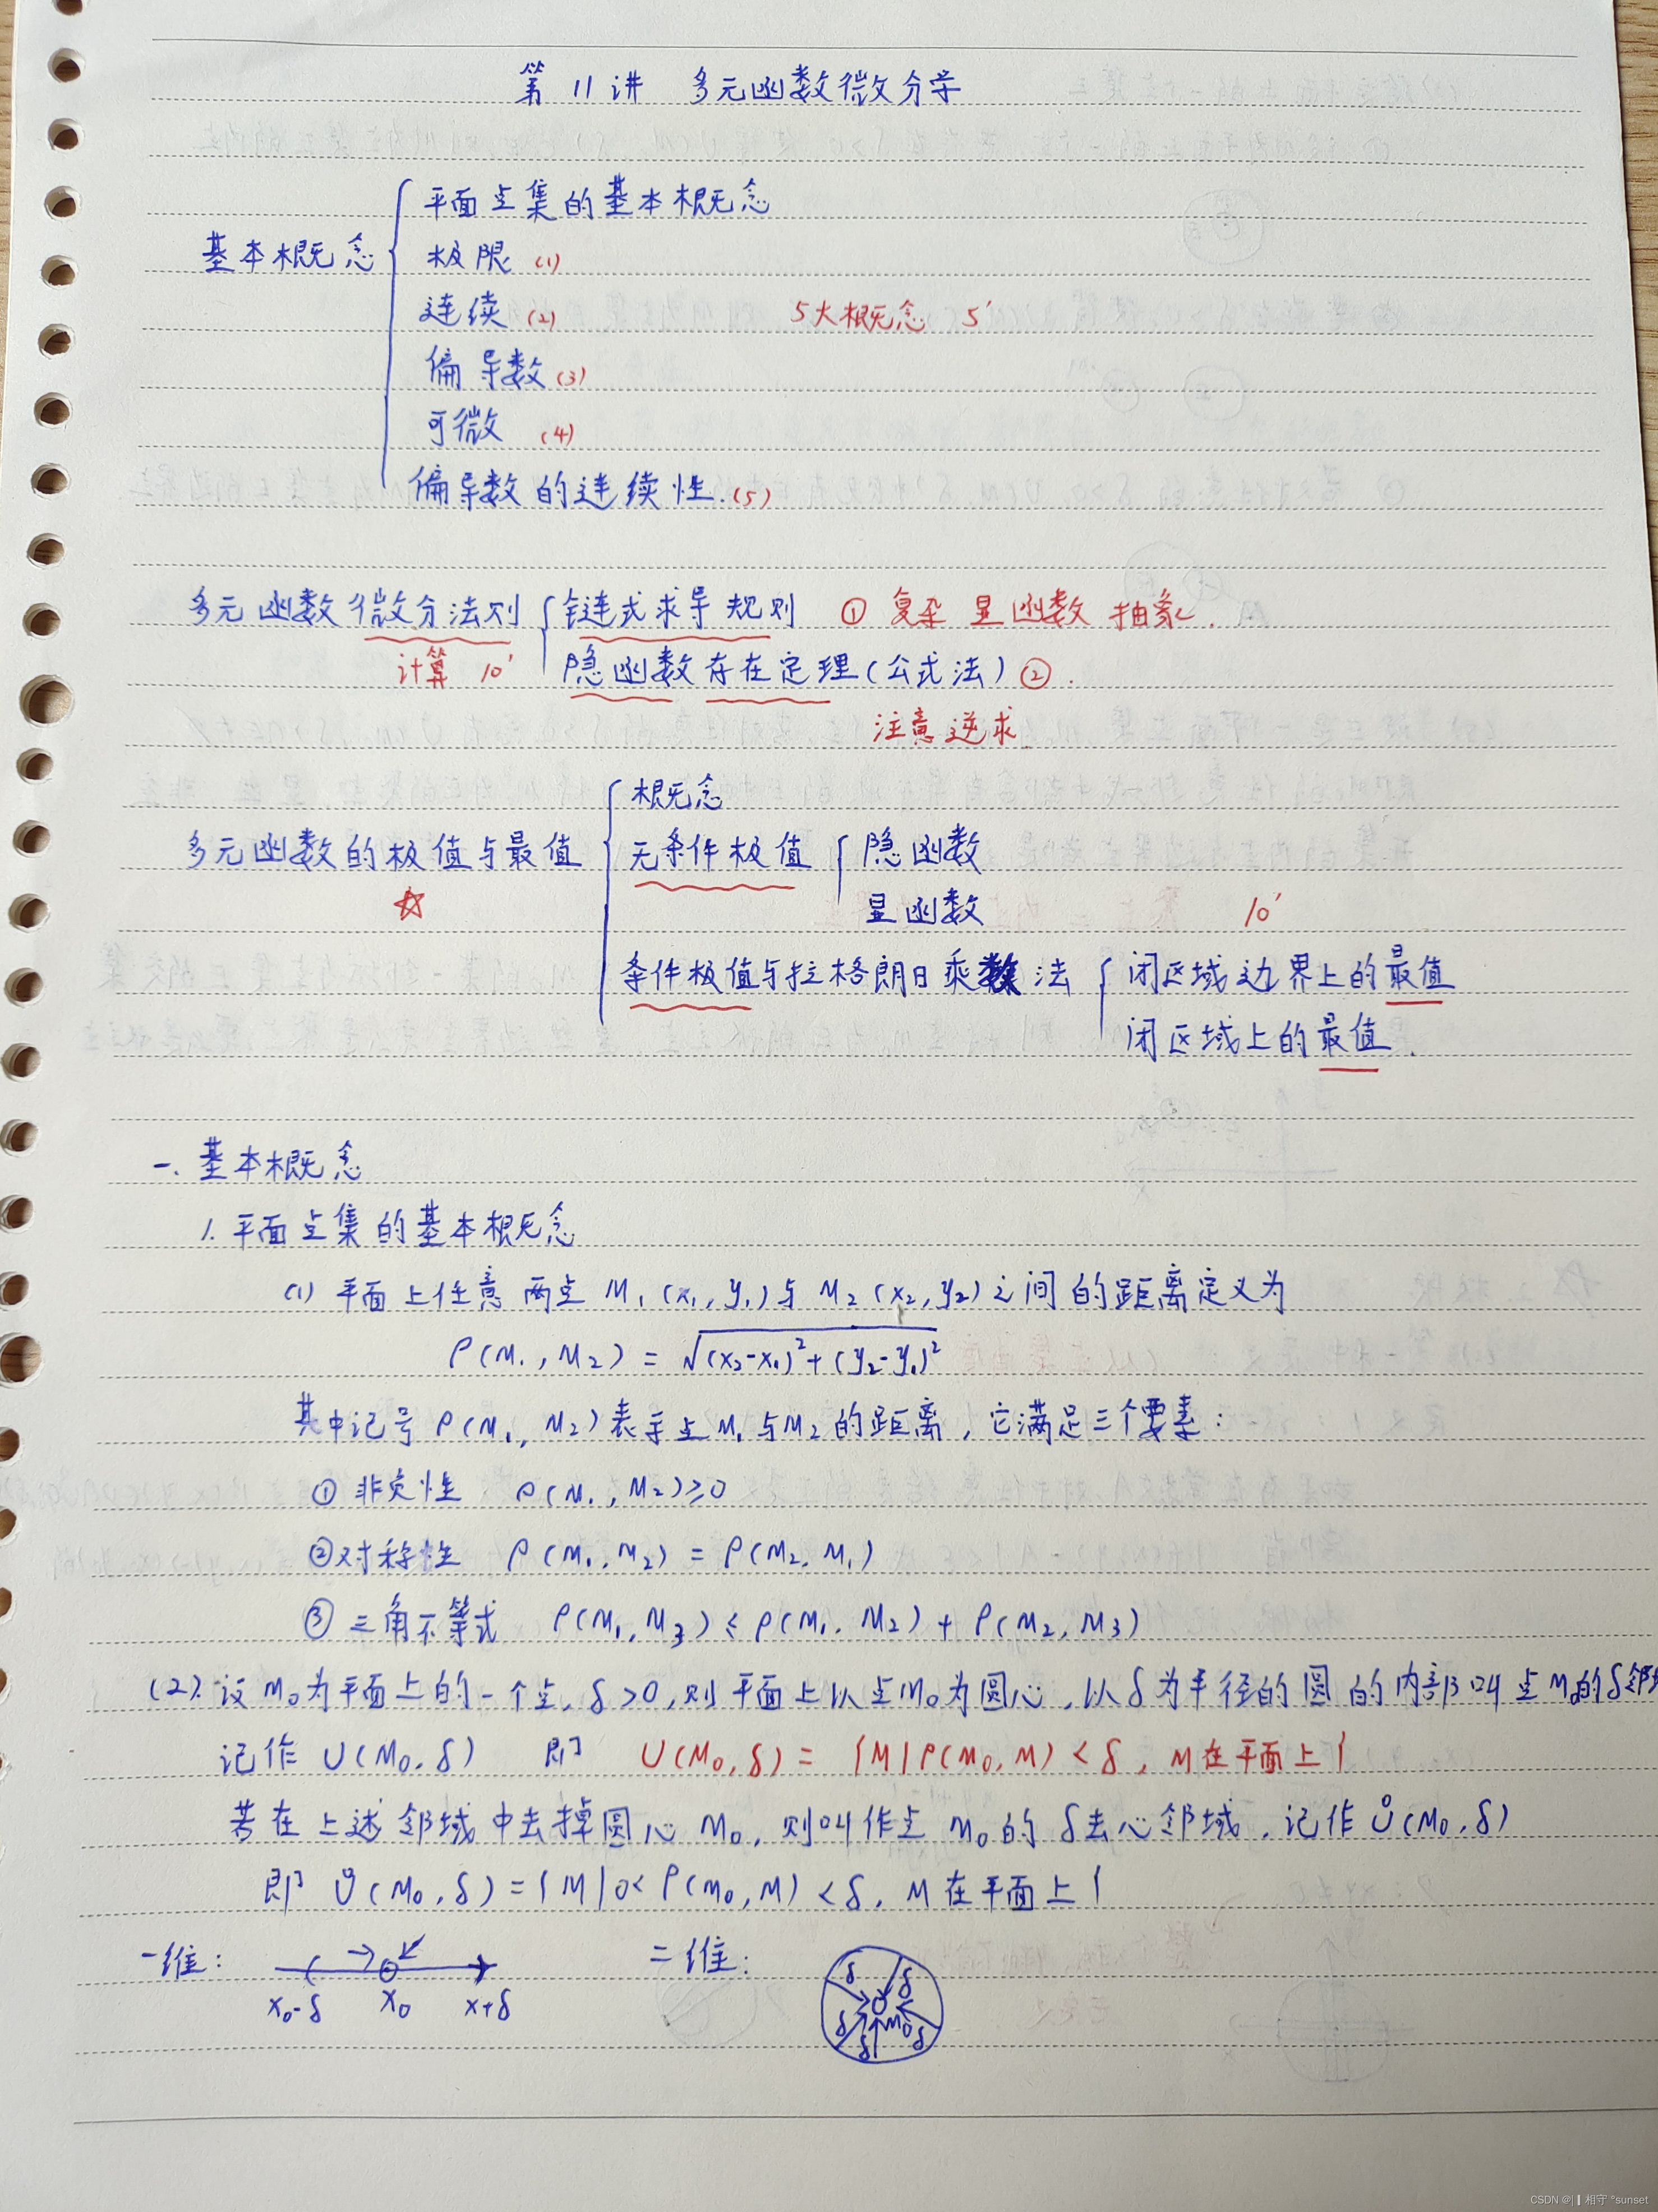 第11讲 多元函数微分学
平面点集的基本概念
基本概念 极限 (1)
连续 (2) 5大概念 5'
偏导数 (3)
可微 (4)
偏导数的连续性. (5)
多元函数微分法则 链式求导规则 ① 复杂 显函数 抽象.
计算 10' 隐函数存在定理(公式法) ② .
注意逆求
概念
多元函数的极值与最值 无条件极值 隐函数
☆ 显函数 10'
条件极值与拉格朗日乘数法 闭区域边界上的最值
闭区域上的最值.
一. 基本概念
1. 平面点集的基本概念
(1) 平面上任意两点 M₁(x₁, y₁)与 M₂(x₂, y₂)之间的距离定义为
ρ(M₁, M₂) = √(x₂-x₁)²+(y₂-y₁)²
其中记号 ρ(M₁, M₂)表示点M₁与M₂的距离, 它满足三个要素:
① 非负性 ρ(M₁, M₂)≥0
②对称性 ρ(M₁, M₂) = ρ(M₂, M₁)
③ 三角不等式 ρ(M₁, M₃) ≤ ρ(M₁, M₂) + ρ(M₂, M₃)
(2). 设M₀为平面上的一个点, δ>0, 则平面上以点M₀为圆心, 以δ为半径的圆的内部叫点M₀的δ邻域
记作 U(M₀, δ) 即 U(M₀, δ) = {M|ρ(M₀, M) < δ, M在平面上}
若在上述邻域中去掉圆心M₀, 则叫作点M₀的δ去心邻域, 记作 Ů(M₀, δ)
即 Ů(M₀, δ) = {M|0< ρ(M₀, M) < δ, M在平面上}
一维: x₀-δ x₀ x+δ 二维: δ δ δ δ δ M₀
CSDN @| ▎相守 °sunset